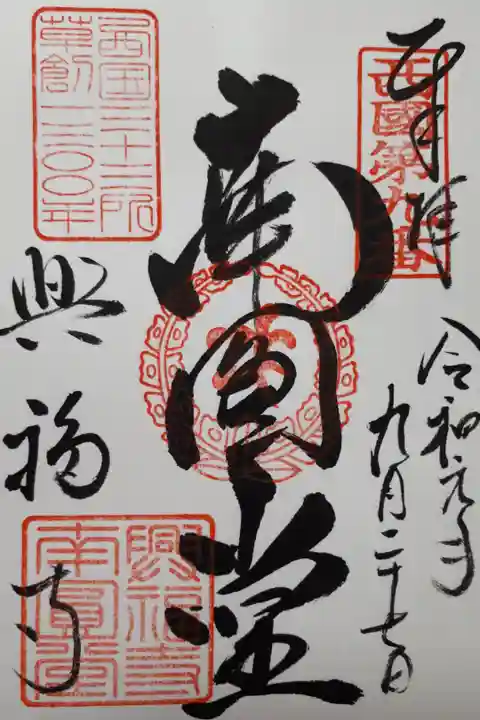 奉拝
西國第九番
令和元年
九月二十七日
南圓堂
西国三十三所
草創一三〇〇年
興福寺
興福寺
南圓堂